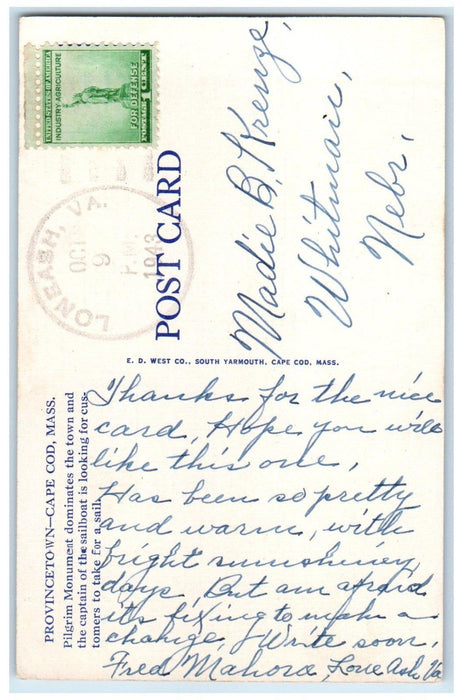 UNITED STATES OF AMERICA
INDUSTRY AGRICULTURE
FOR DEFENSE
POSTAGE 1 CENT
LONEASH, VA.
OCT
9
P.M.
1943
POST CARD
Madie B. Krenze,
Whitman,
Nebr.
E. D. WEST CO., SOUTH YARMOUTH, CAPE COD, MASS.
PROVINCETOWN—CAPE COD, MASS.
Pilgrim Monument dominates the town and
the captain of the sailboat is looking for cus-
tomers to take for a sail.
Thanks for the nice
card, Hope you will
like this one,
Has been so pretty
and warm, with
bright sunshiney
days, But am afraid
its fixing to make a
change, Write soon,
Fred Mahora, Lone Ash, Va